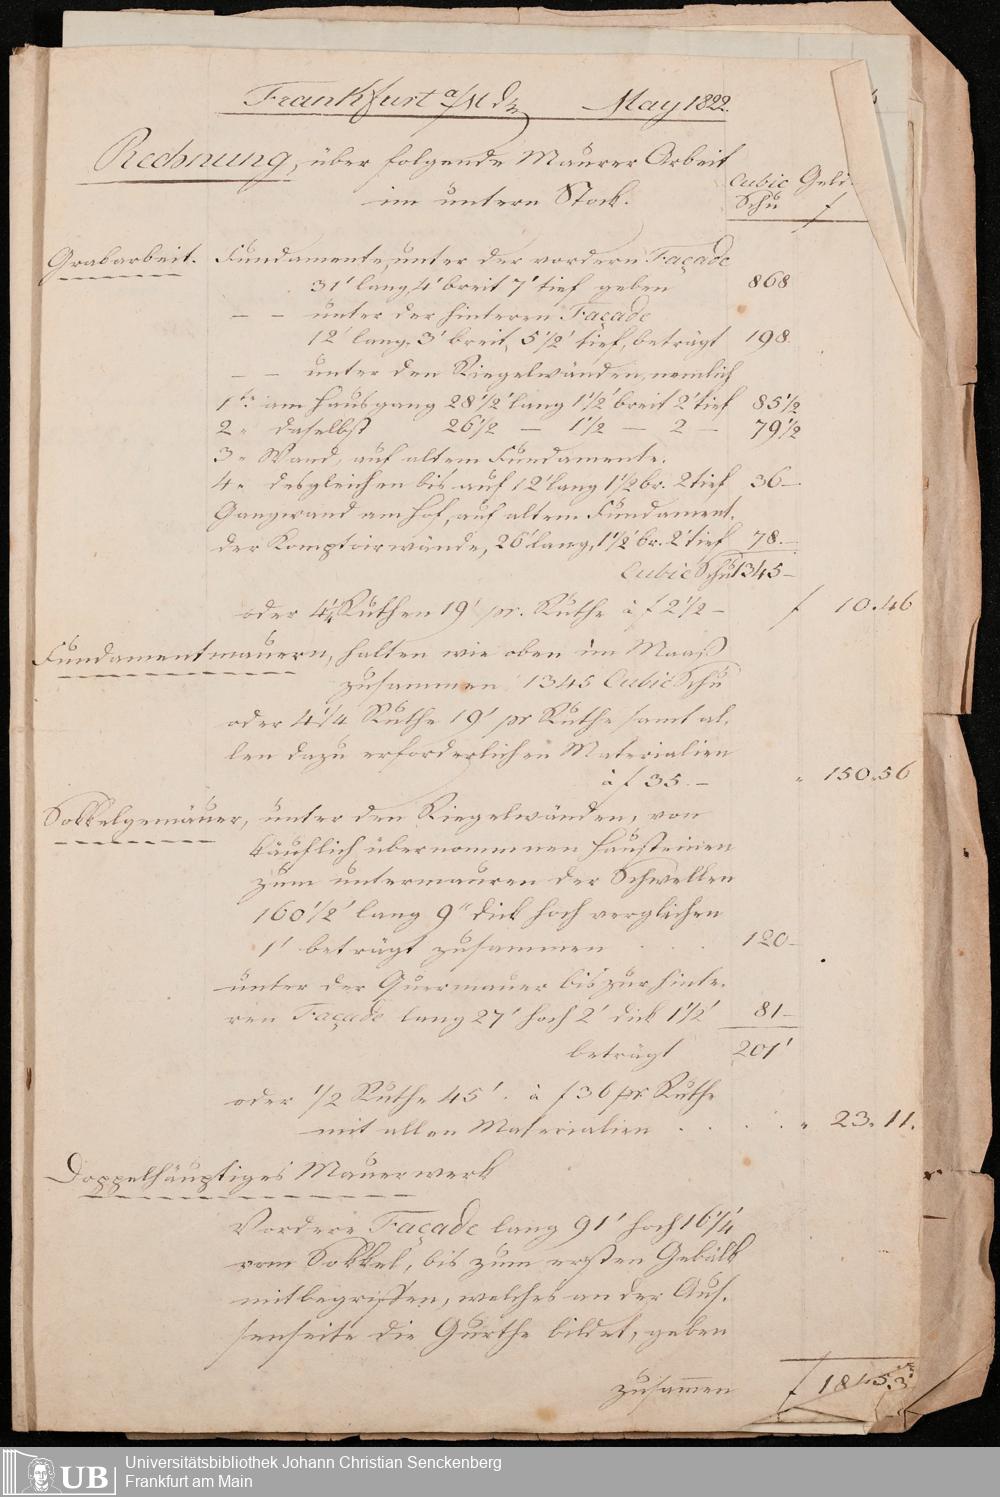 Frankfurt a/M d May 1822.
Rechnung, über folgende Maurer Arbeit
im untern Stock.
Cubic Schu
Geld
f
Grabarbeit. Fundamente, unter der vordern Façade
31' lang, 4' breit 7' tief geben 868
— — unter der hinteren Façade
12' lang, 3' breit, 5 1/2' tief, beträgt 198.
— — unter den Riegelwänden, nemlich
1te am Hausgang 28 1/2' lang 1 1/2' breit 2' tief 85 1/2
2" daselbst 26 1/2 — 1 1/2 — 2 — 79 1/2
3" Wand, auf altem Fundamente.
4" desgleichen bis auf 12' lang 1 1/2' br. 2' tief 36 —
Gangwand am Hof, auf altem Fundament.
der Komptoirwände, 26' lang, 1 1/2' br. 2' tief 78. —
Cubic Schu 1345 —
oder 4 1/4 Ruthen 19' pr. Ruthe à f 2 1/2 — f 10.46
Fundamentmauern, halten wie oben im Maaß
zusammen 1345 Cubic Schu
oder 4 1/4 Ruthe 19' pr Ruthe samt al-
len dazu erforderlichen Materialien
à f 35. — " 150.56
Sokkelgemäuer, unter den Riegelwänden, von
käuflich übernommenen Hausteinen
zum untermauren der Schwellen
160 1/2' lang 9" dick hoch verglichen
1' beträgt zusammen . . . 120 —
unter der Quermauer bis zur hinte-
ren Façade lang 27' hoch 2' dick 1 1/2' 81 —
beträgt 201'
oder 1/2 Ruthe 45'. à f 36 pr Ruthe
mit allen Materialien . . . . . " 23.11.
Doppelhäuptiges Mauerwerk
Vordere Façade lang 91' hoch 16 1/4'
vom Sokkel, bis zum ersten Gebälk
mitbegriffen, welches an der Aus-
senseite die Gurthe bildet, geben
zusammen f 184.53
UB Universitätsbibliothek Johann Christian Senckenberg
Frankfurt am Main